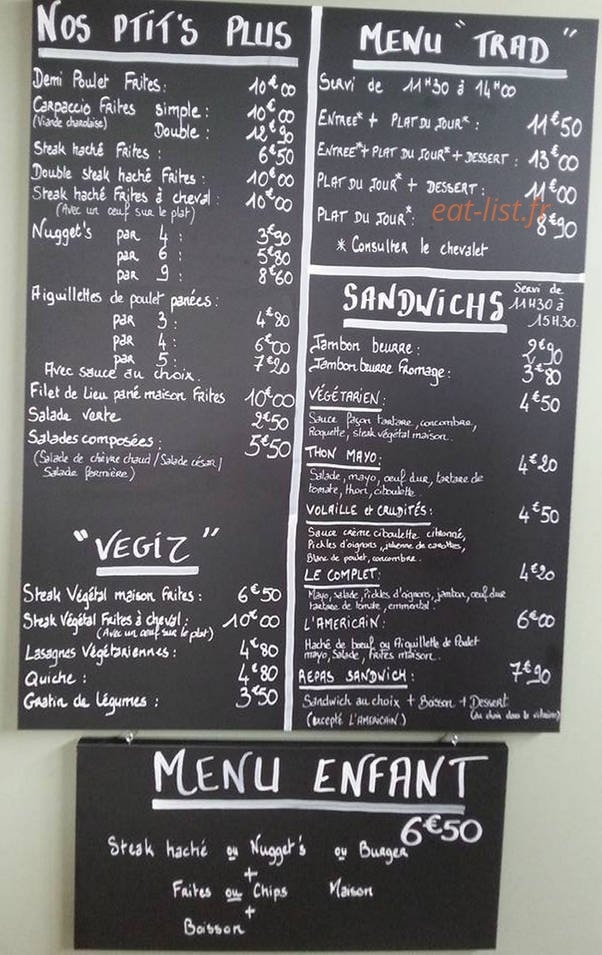 NOS PTIT'S PLUS
Demi Poulet Frites: 10€00
Carpaccio Frites simple: 10€00
(Viande charolaise) Double: 12€90
Steak haché Frites: 6€50
Double steak haché Frites: 10€00
Steak haché Frites à cheval: 10€00
(Avec un oeuf sur le plat)
Nugget's par 4: 3€90
par 6: 5€80
par 9: 8€60
Aiguillettes de poulet panées:
par 3: 4€80
par 4: 6€00
par 5: 7€20
Avec sauce au choix.
Filet de Lieu pané maison Frites 10€00
Salade verte 2€50
Salades composées: 5€50
(Salade de chèvre chaud/Salade césar/
Salade fermière)
"VEGIZ"
Steak Végétal maison Frites: 6€50
Steak Végétal Frites à cheval: 10€00
(Avec un oeuf sur le plat)
Lasagnes Végétariennes: 4€80
Quiche: 4€80
Gratin de Légumes: 3€50
MENU "TRAD"
Servi de 11H30 à 14H00
ENTREE* + PLAT DU JOUR*: 11€50
ENTREE* + PLAT DU JOUR* + DESSERT: 13€00
PLAT DU JOUR* + DESSERT: 11€00
eat-list.fr
PLAT DU JOUR*: 8€90
* Consulter le chevalet
SANDWICHS
Servi de
11H30 à
15H30.
Jambon beurre: 2€90
Jambon beurre Fromage: 3€80
VÉGÉTARIEN: 4€50
Sauce façon tartare, concombre,
Roquette, steak végétal maison.
THON MAYO: 4€20
Salade, mayo, oeuf dur, tartare de
tomate, thon, ciboulette
VOLAILLE et CRUDITÉS: 4€50
Sauce crème ciboulette citronné,
Pickles d'oignons, julienne de carottes,
Blanc de poulet, concombre.
LE COMPLET: 4€20
Mayo, salade, Pickles d'oignons, jambon, oeuf dur
tartare de tomate, emmental.
L'AMERICAIN: 6€00
Haché de boeuf ou Aiguillette de Poulet
mayo, Salade, frites maison.
REPAS SANDWICH: 7€90
Sandwich au choix + Boisson + Dessert
(excepté L'AMERICAIN.) (au choix dans la vitrine)
MENU ENFANT
6€50
Steak haché ou Nugget's ou Burger
+
Frites ou Chips Maison
+
Boisson